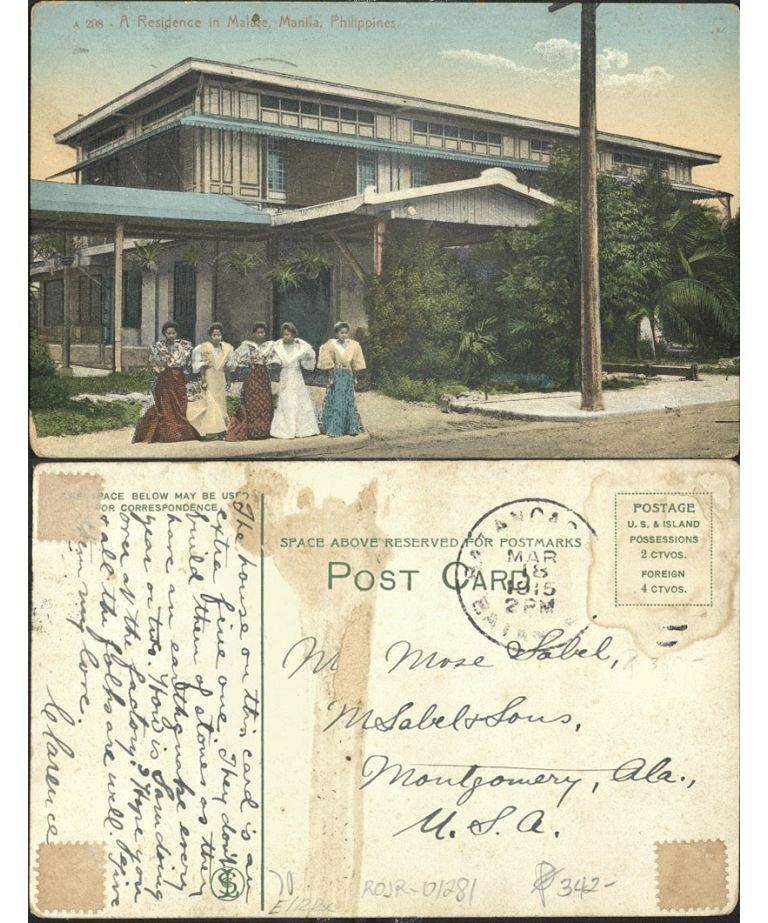 A 298 - A Residence in Malate, Manila, Philippines.
SPACE BELOW MAY BE USED
FOR CORRESPONDENCE.
The house on this card is an
extra fine one. They don't
build them of stones as they
have an earthquake every
year or two. How is Sam doing
over at the factory? Hope you
& all the folks are well. Give
them my love.
Clarence
SPACE ABOVE RESERVED FOR POSTMARKS
POST CARD
MAR
18
1915
2 PM
POSTAGE
U. S. & ISLAND
POSSESSIONS
2 CTVOS.
FOREIGN
4 CTVOS.
M Mose Sabel,
M Sabel & Sons,
Montgomery, Ala.,
U. S. A.
ROJR-01281
342-